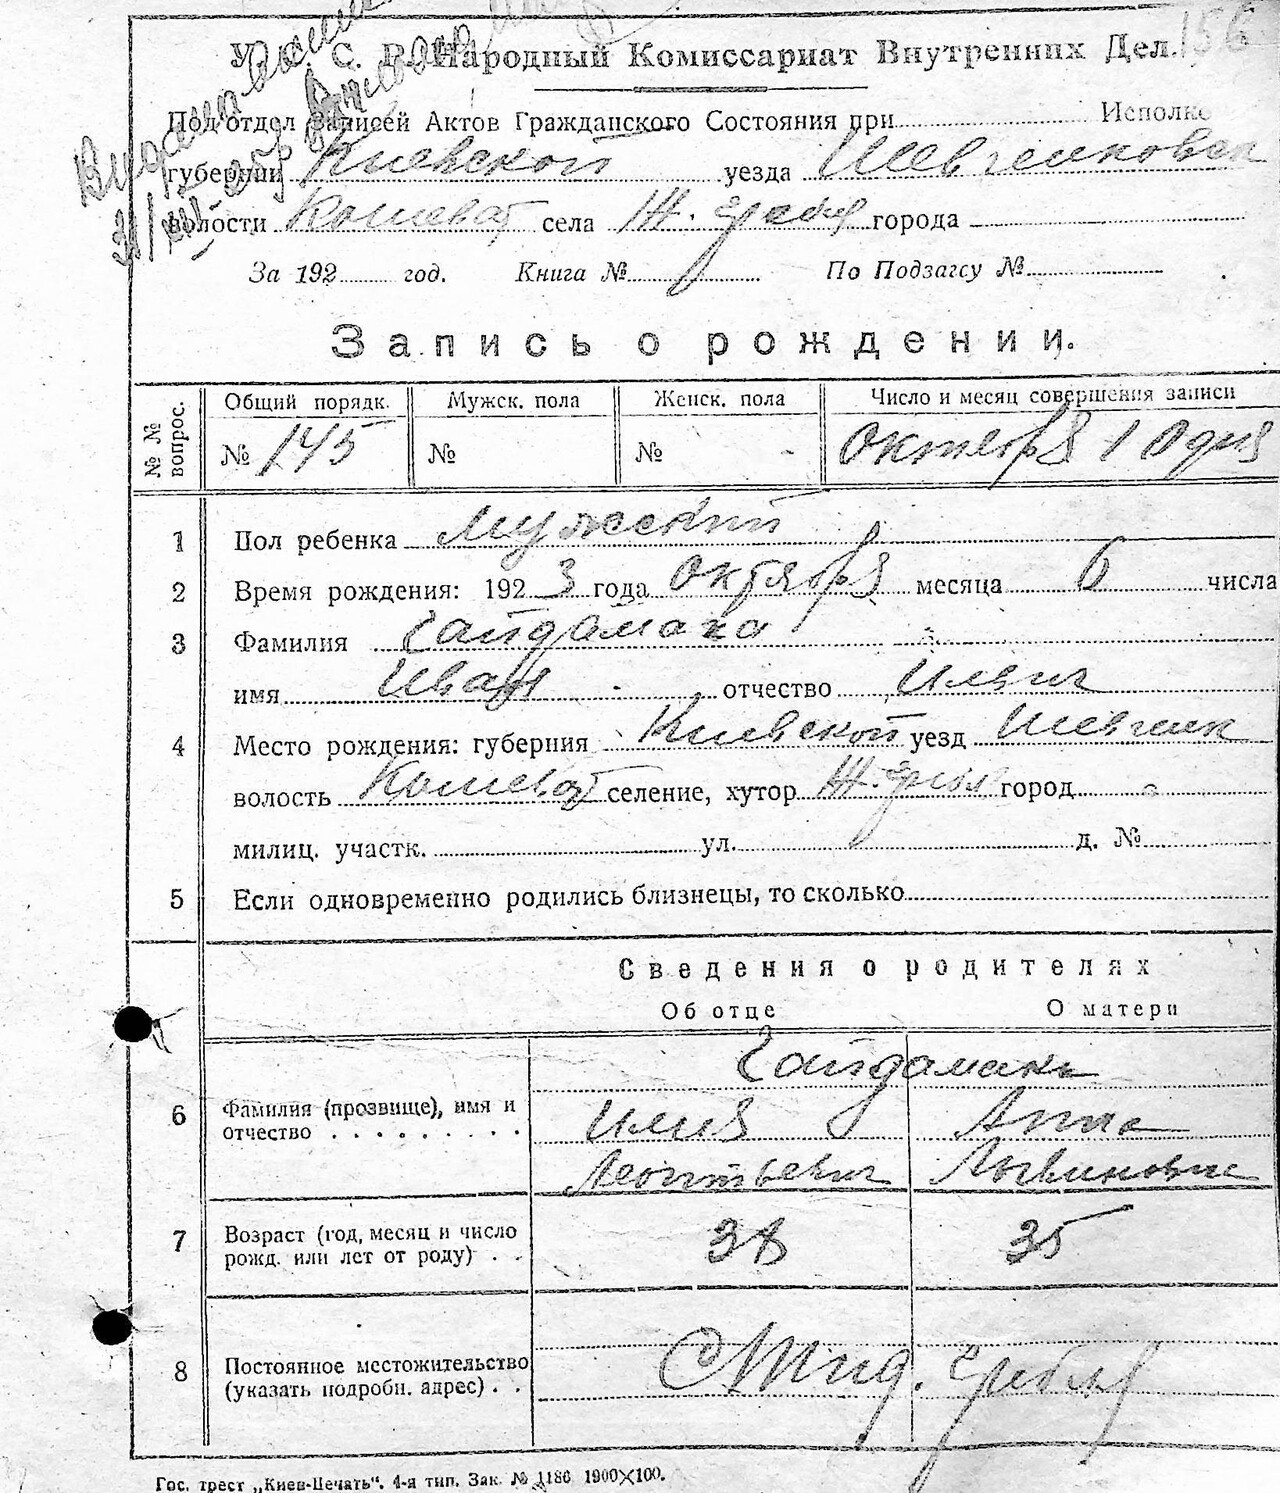 У. С. С. Р. Народный Комиссариат Внутренних Дел. 156
Под'отдел Записей Актов Гражданского Состояния при Исполко
губернии Киевской уезда Шевченковск
волости Кошеват села Ж. Гребля города
За 192 год. Книга № По Подзагсу №
Запись о рождении.
№ № вопрос. Общий порядк. Мужск. пола Женск. пола Число и месяц совершения записи
№ 145 № № Октября 10 дня
1 Пол ребенка Мужеский
2 Время рождения: 1923 года Октября месяца 6 числа
3 Фамилия Гайдамака
имя Иван отчество Ильич
4 Место рождения: губерния Киевской уезд Шевченк
волость Кошеват селение, хутор Ж. Гребля город
милиц. участк. ул. д. №
5 Если одновременно родились близнецы, то сколько
Сведения о родителях
Об отце О матери
Гайдамаки
6 Фамилия (прозвище), имя и Илия Анна
отчество Леонтьевич Логвиновна
7 Возраст (год, месяц и число 38 35
рожд. или лет от роду)
8 Постоянное местожительство
(указать подробн. адрес) Гребля
Гос. трест „Киев-Печать“. 4-я тип. Зак. № 1186 1900×100.